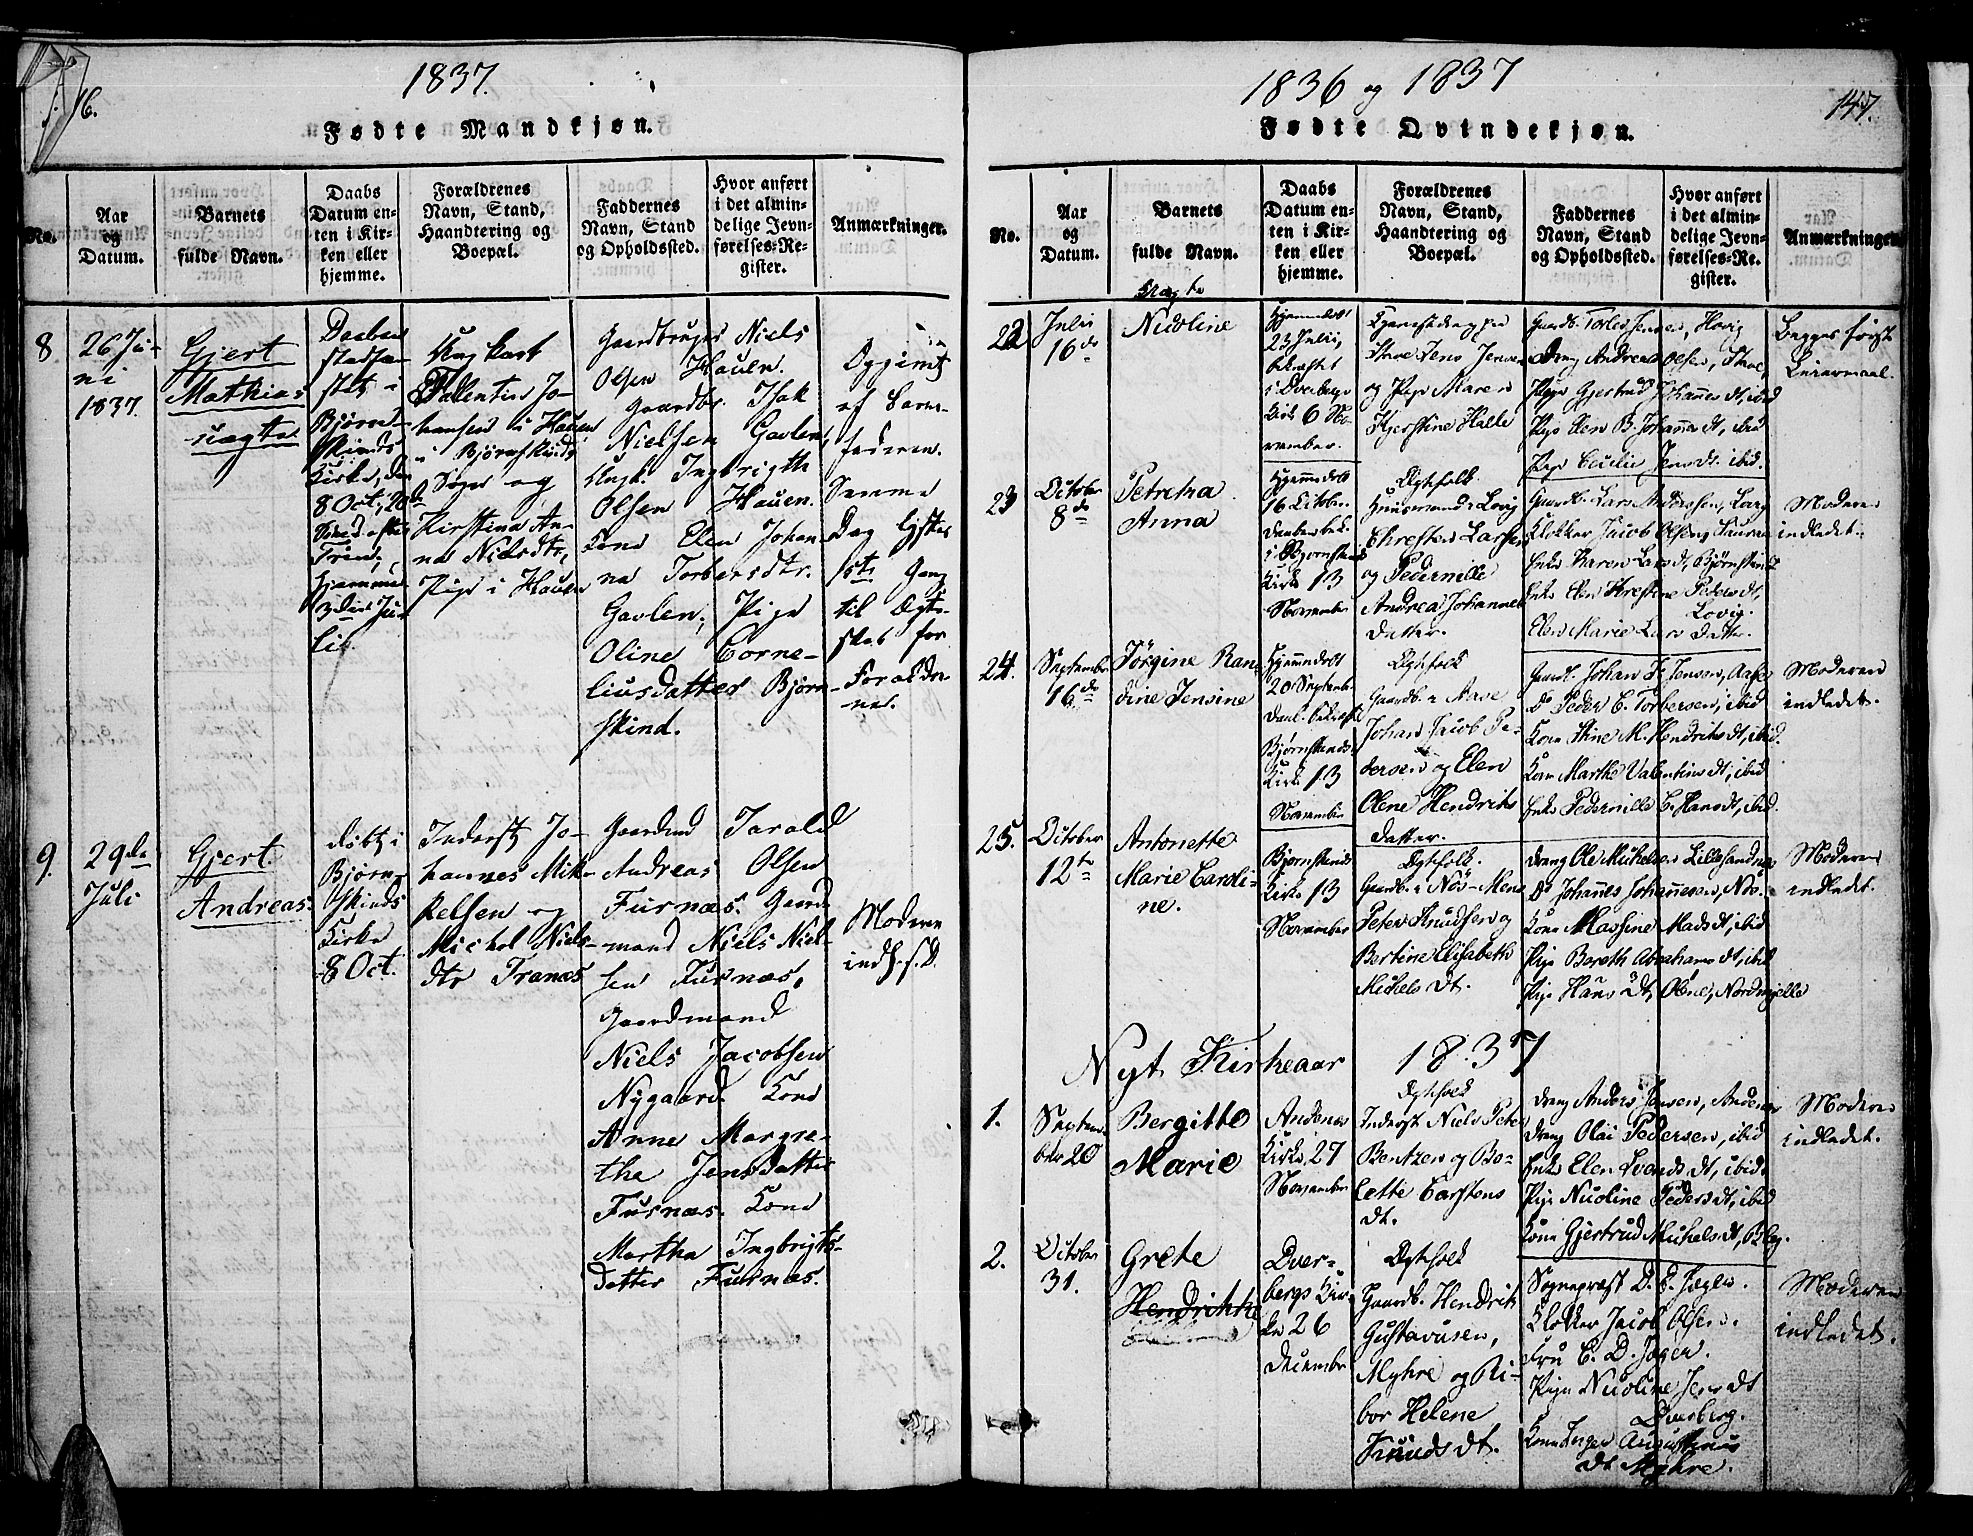 16.
1837.
Fødte Mandkjøn.
No.
Aar
og
Datum.
Barnets
fulde Navn.
Daabs
Datum en-
ten i Kir-
ken eller
hjemme.
Forældrenes
Navn, Stand,
Haandtering og
Boepæl.
Faddernes
Navn, Stand
og Opholdssted.
Hvor anført
i det almin-
delige Jevn-
førelses-Re-
gister.
Anmærkninger.
8
26 Ju-
ni
1837.
Gjert
Mathias
uægte
Daaben
stadfæ-
stet i
Bjørn-
skinds
Kirke, den
8 Oct.
Hjemme
3die Ju-
lii.
Ungkarl
Valentin Jo-
hansen i Hauen
i Bjørnskinds
Sogn og
Kirstina An-
na Nielsdtr,
Pige i Hauen
Gaardbruger Niels
Olsen Hauen.
Gaardbr. Isak
Nielsen Gavlen,
Ungk. Ingbrigth
Olsen Hauen.
Kone Elen Johan-
na Torbersdtr.
Gavlen; Pige
Oline Corne-
liusdatter Bjørn-
skind.
Opgivet
af Barne-
faderen.
Samme
Dag lystes
1ste Gang
til Ægte-
skab for
Foraldre-
ne.
9.
29de
Juli
Gjert.
Andreas.
døbt i
Bjørn-
skinds
Kirke
8 Oct.
Inderst Jo-
hannes Mik-
kelsen og
Michol Niels-
dtr Tranes
Gaardmd Tarald
Andreas Olsen
Furnæs. Gaard-
mand Niels Niel-
sen Furnæs,
Gaardmand
Niels Jacobsen
Nygaard. Kone
Anne Margre-
the Jensdatter
Furnæs. Kone
Martha Ingbrigts-
datter Furnæs.
Moderen
indl. s. D.
1836 og 1837
147.
Fødte Qvindekjøn.
No.
Aar
og
Datum.
Barnets
fulde Navn.
Daabs
Datum en-
ten i Kir-
ken eller
hjemme.
Forældrenes
Navn, Stand,
Haandtering og
Boepæl.
Faddernes
Navn, Stand
og Opholdssted.
Hvor anført
i det almin-
delige Jevn-
førelses-Re-
gister.
Anmærkninger
22
Julii
16de
Uægte
Nicoline
Hjemmedøbt
23 Julii
bekræftet
i Dverbergs
Kirke 6 No-
vember.
Jens Jensen
og Pige Maren
Kjerstine Halle
Gaardb. Torles Jensen, Hovig
Dreng Andreas Olsen,
Pige Gjertrud Johannesdt, ibid
Pige Elen B. Johannesdt, ibid.
Pige Cecilie Jensdt. ibid.
Begges første
Leiermaal.
23
October
8de
Petricha
Anna
Hjemmedøbt
16 October.
Daaben bek.
i Bjørnskinds
Kirke 13
November
Ægtefolk
Huusmand i Lovig
Chresten Larsen
og Pedernille
Andrea Johannes
Datter.
Gaardb. Lars Andersen, Lovig
Klokker Jacob Olsen,
Enke Karen Larsdt, Bjørnskind
Enke Elen Kirstine Pedersdt,
Lovig.
Elen Marie Lars Datter.
Moderen
indledet.
24.
September
16de
Jörgine Ran-
dine Jensine
Hjemmedøbt
20 September
Daab. bekræftet
Bjørnskinds
Kirke 13
November
Ægtefolk
Gaardb. i Aase
Johan Jacob Pe-
dersen og Elen
Olene Hendriks
Datter.
Gaardb. Johan F. Jensen, Aase
Do Peder C. Torbersen, ibid
Kone Stine M. Hendriksdt, ibid.
Kone Marthe Valentinsdt, ibid
Enke Pedernille C. Hansdt, ibid.
Moderen
indledet.
25.
October
12te
Antonette
Marie Caroli-
ne.
Bjørnskinds
Kirke 13
November
Ægtefolk.
Gaardb. i Nös - Mens
Peter Knudsen og
Bertine Elisabeth
Michelsdt.
Dreng Ole Michelsen Lillesandnæs
Do Johannes Johannesen, Nös.
Kone Massine Madsdt, ibid
Pige Bereth Abrahamsdt, ibid
Pige Hansdt, Olene, Nordmjelle
Moderen
indledet.
Nyt Kirkeaar 1837
1.
Septem-
ber 20
Bergitte
Marie
Andenes
Kirke 27
November
Ægtefolk
Inderst Niels Peter
Bentzen og Bo-
lette Carstens
dt.
Dreng Anders Jensen, Andenes
Dreng Olai Pedersen, ibid
Enke Elen Svendsdt, ibid.
Pige Nicoline Pedersdt, ibid
Kone Gjertrud Michelsdt, Bleg.
Moderen
indledet.
2.
October
31.
Grete
Hendrikke
Dver-
bergs Kir-
ke 26
December
Ægtefolk
Gaardb. Hendrik
Gustavusen,
Myhre og Ri-
bor Helene
Knudsdt.
Sognepræst D. C. Jæger.
Klokker Jacob Olsen.
Fru C. D. Jæger.
Pige Nicoline Jensdt
Dverberg.
Kone Augustinus
dt Myhre.
Moderen
indledet.